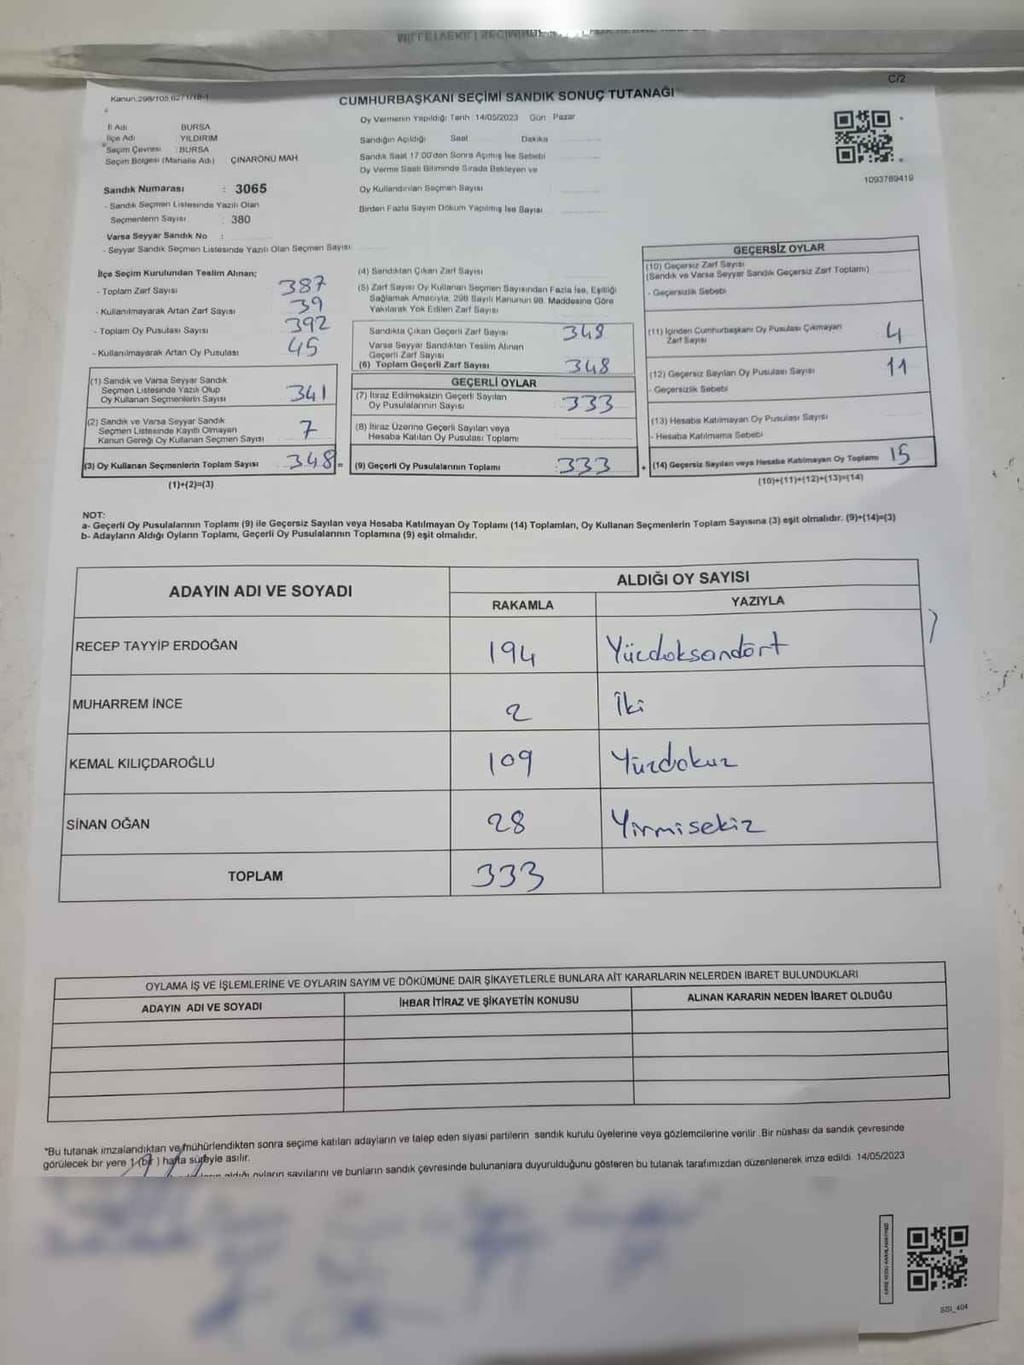 C/2
Kanun.298/105,6271/18-1
CUMHURBAŞKANI SEÇİMİ SANDIK SONUÇ TUTANAĞI
İl Adı BURSA
İlçe Adı YILDIRIM
Seçim Çevresi : BURSA
Seçim Bölgesi (Mahalle Adı) ÇINARÖNÜ MAH
Sandık Numarası : 3065
- Sandık Seçmen Listesinde Yazılı Olan
Seçmenlerin Sayısı 380
Varsa Seyyar Sandık No :
- Seyyar Sandık Seçmen Listesinde Yazılı Olan Seçmen Sayısı
Oy Vermenin Yapıldığı Tarih 14/05/2023 Gün Pazar
Sandığın Açıldığı Saat Dakika
Sandık Saat 17.00'den Sonra Açılmış İse Sebebi
Oy Verme Saati Bitiminde Sırada Bekleyen ve
Oy Kullandırılan Seçmen Sayısı
Birden Fazla Sayım Döküm Yapılmış İse Sayısı
1093789419
İlçe Seçim Kurulundan Teslim Alınan;
- Toplam Zarf Sayısı 387
- Kullanılmayarak Artan Zarf Sayısı 39
- Toplam Oy Pusulası Sayısı 392
- Kullanılmayarak Artan Oy Pusulası 45
(1) Sandık ve Varsa Seyyar Sandık
Seçmen Listesinde Yazılı Olup
Oy Kullanan Seçmenlerin Sayısı 341
(2) Sandık ve Varsa Seyyar Sandık
Seçmen Listesinde Kayıtlı Olmayan
Kanun Gereği Oy Kullanan Seçmen Sayısı 7
(3) Oy Kullanan Seçmenlerin Toplam Sayısı 348 =
(1)+(2)=(3)
(4) Sandıktan Çıkan Zarf Sayısı
(5) Zarf Sayısı Oy Kullanan Seçmen Sayısından Fazla İse, Eşitliği
Sağlamak Amacıyla, 298 Sayılı Kanunun 98. Maddesine Göre
Yakılarak Yok Edilen Zarf Sayısı
Sandıkta Çıkan Geçerli Zarf Sayısı 348
Varsa Seyyar Sandıktan Teslim Alınan
Geçerli Zarf Sayısı
(6) Toplam Geçerli Zarf Sayısı 348
GEÇERLİ OYLAR
(7) İtiraz Edilmeksizin Geçerli Sayılan
Oy Pusulalarının Sayısı 333
(8) İtiraz Üzerine Geçerli Sayılan veya
Hesaba Katılan Oy Pusulası Toplamı
(9) Geçerli Oy Pusulalarının Toplamı 333 +
GEÇERSİZ OYLAR
(10) Geçersiz Zarf Sayısı
(Sandık ve Varsa Seyyar Sandık Geçersiz Zarf Toplamı)
- Geçersizlik Sebebi
(11) İçinden Cumhurbaşkanı Oy Pusulası Çıkmayan
Zarf Sayısı 4
(12) Geçersiz Sayılan Oy Pusulası Sayısı 11
- Geçersizlik Sebebi
(13) Hesaba Katılmayan Oy Pusulası Sayısı
- Hesaba Katılmama Sebebi
(14) Geçersiz Sayılan veya Hesaba Katılmayan Oy Toplamı 15
(10)+(11)+(12)+(13)=(14)
NOT:
a- Geçerli Oy Pusulalarının Toplamı (9) ile Geçersiz Sayılan veya Hesaba Katılmayan Oy Toplamı (14) Toplamları, Oy Kullanan Seçmenlerin Toplam Sayısına (3) eşit olmalıdır. (9)+(14)=(3)
b- Adayların Aldığı Oyların Toplamı, Geçerli Oy Pusulalarının Toplamına (9) eşit olmalıdır.
ADAYIN ADI VE SOYADI
ALDIĞI OY SAYISI
RAKAMLA YAZIYLA
RECEP TAYYİP ERDOĞAN 194 Yüzdoksandört
MUHARREM İNCE 2 İki
KEMAL KILIÇDAROĞLU 109 Yüzdokuz
SİNAN OĞAN 28 Yirmisekiz
TOPLAM 333
OYLAMA İŞ VE İŞLEMLERİNE VE OYLARIN SAYIM VE DÖKÜMÜNE DAİR ŞİKAYETLERLE BUNLARA AİT KARARLARIN NELERDEN İBARET BULUNDUKLARI
ADAYIN ADI VE SOYADI İHBAR İTİRAZ VE ŞİKAYETİN KONUSU ALINAN KARARIN NEDEN İBARET OLDUĞU
*Bu tutanak imzalandıktan ve mühürlendikten sonra seçime katılan adayların ve talep eden siyasi partilerin sandık kurulu üyelerine veya gözlemcilerine verilir .Bir nüshası da sandık çevresinde
görülecek bir yere 1 (bir ) hafta süreyle asılır.
aldığı oyların sayılarını ve bunların sandık çevresinde bulunanlara duyurulduğunu gösteren bu tutanak tarafımızdan düzenlenerek imza edildi. 14/05/2023
SSI_404